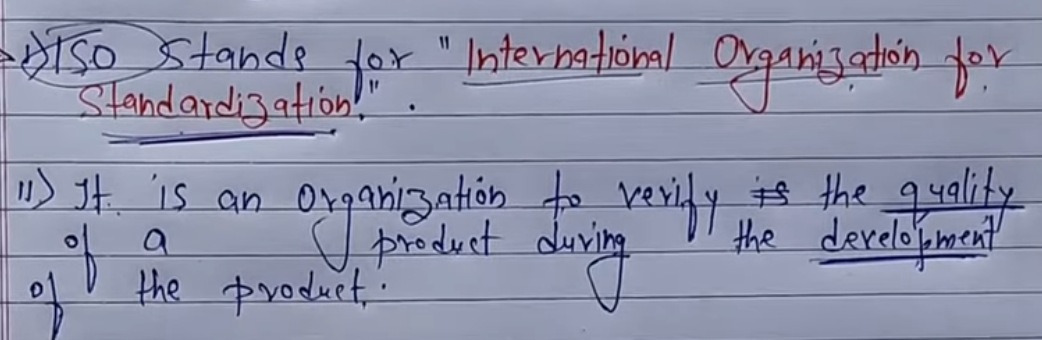 i) ISO Stands for "International Organization for
Standardization".
ii) It is an organization to verify the quality
of a product during the development
of the product.